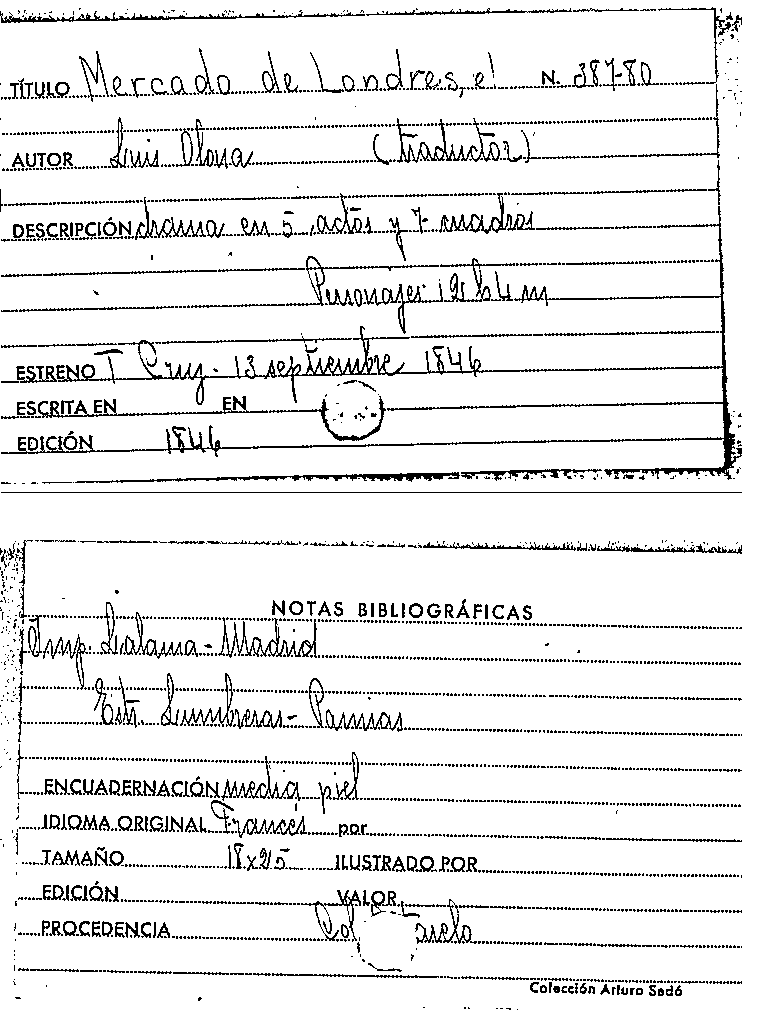 TÍTULO Mercado de Londres, el N. 387-80
AUTOR Luis Olona (traductor)
DESCRIPCIÓN drama en 5 actos y 7 cuadros
Personajes 12 h 4 m
ESTRENO T Cruz - 13 septiembre 1846
ESCRITA EN EN
EDICIÓN 1846
NOTAS BIBLIOGRÁFICAS
Imp. Lalama - Madrid
Lumbreras -
ENCUADERNACIÓN media piel
IDIOMA ORIGINAL Francés por
TAMAÑO 18x25 ILUSTRADO POR
EDICIÓN VALOR
PROCEDENCIA
Colección Arturo Sedó